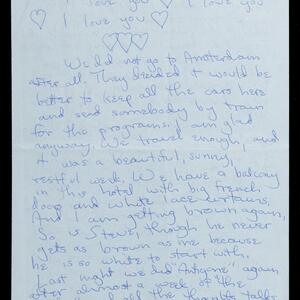 I love you ♡ I love you
♡ I love you ♡
♡♡♡
We did not go to Amsterdam
after all. They decided it would be
better to keep all the cars here
and send somebody by train
for the programs. I am glad
anyway. We travel enough, and
it was a beautiful, sunny,
restful week. We have a balcony
in this hotel with big french
doors and white lace curtains.
And I am getting brown again,
So is Steve, though he never
gets as brown as me because
he is so white to start with.
Last night we did "Antigone" again,
after almost a week of the